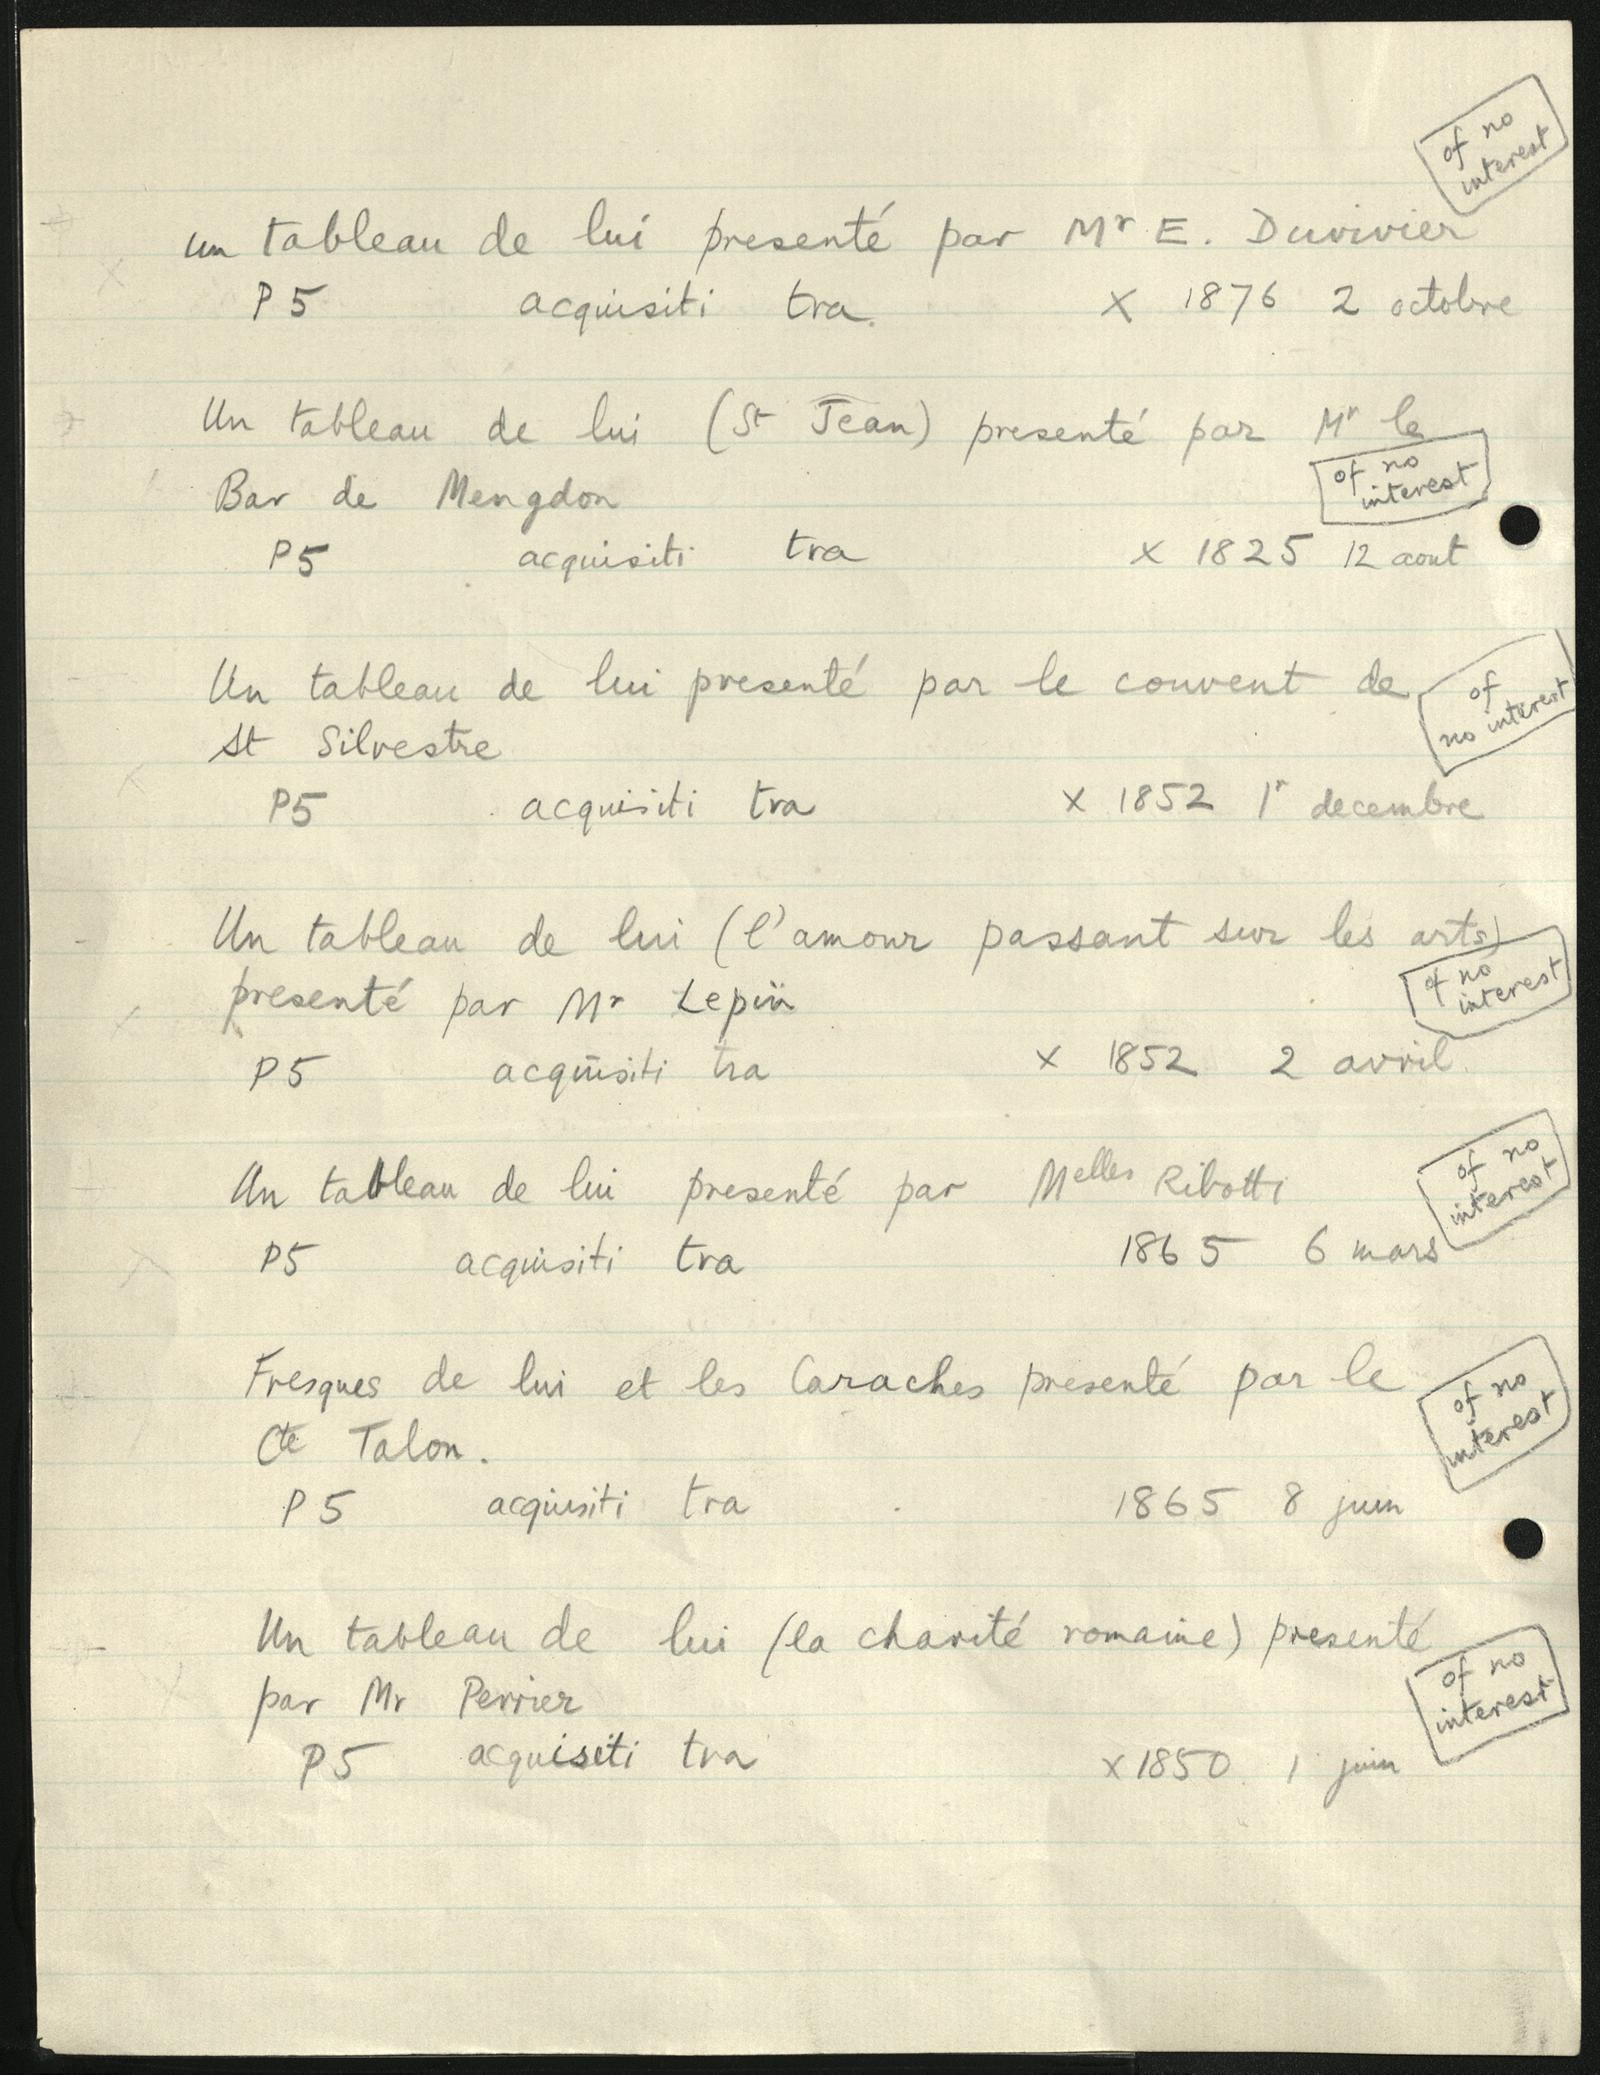 of no
interest
un tableau de lui presenté par Mr E. Duvivier
P5 acquisiti tra. X 1876 2 octobre
Un tableau de lui (St Jean) presenté par Mr le
of no
interest
Bar de Mengdon
P5 acquisiti tra X 1825 12 aout
Un tableau de lui presenté par le couvent de
of
no interest
St Silvestre
P5 acquisiti tra X 1852 1r decembre
Un tableau de lui (l'amour passant sur les arts)
of no
interest
presenté par Mr
P5 acquisiti tra X 1852 2 avril
of no
interest
Un tableau de lui presenté par Melles Ribotti
P5 acquisiti tra 1865 6 mars
Fresques de lui et les Caraches presenté par le
of no
interest
Cte Talon.
P5 acquisiti tra 1865 8 juin
Un tableau de lui (la charité romaine) presenté
of no
interest
par Mr Perrier
P5 acquisiti tra X 1850 1 juin